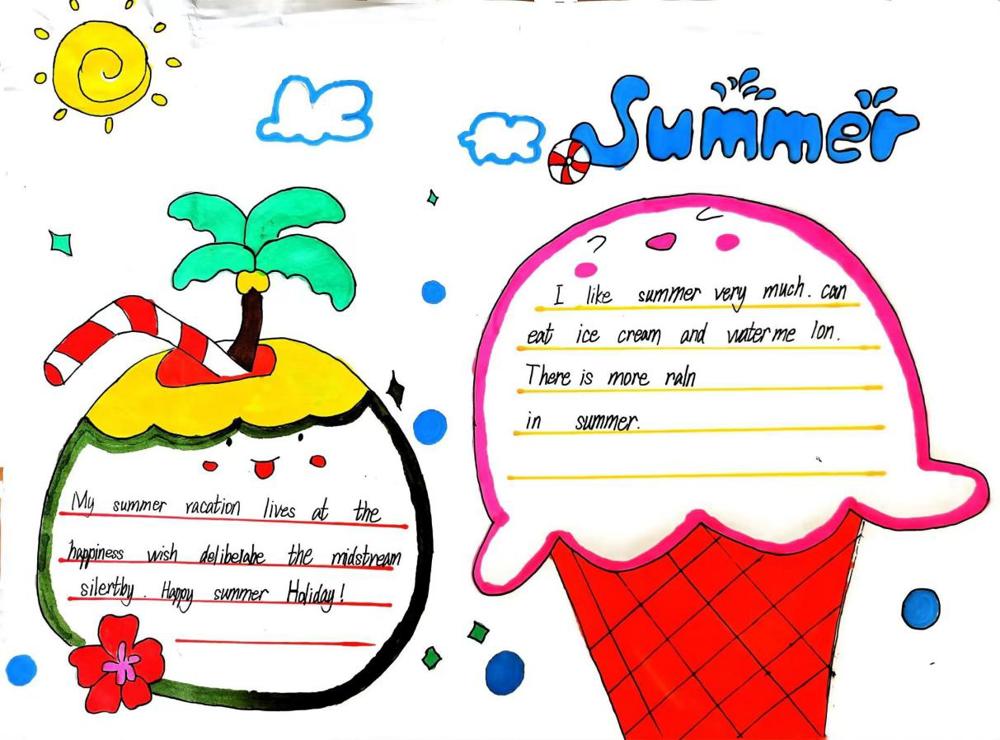 Summer
I like summer very much. can
eat ice cream and waterme lon.
There is more raln
in summer.
My summer racation lives at the
happiness wish delibelabe the midstream
silertby. Happy summer Holiday!